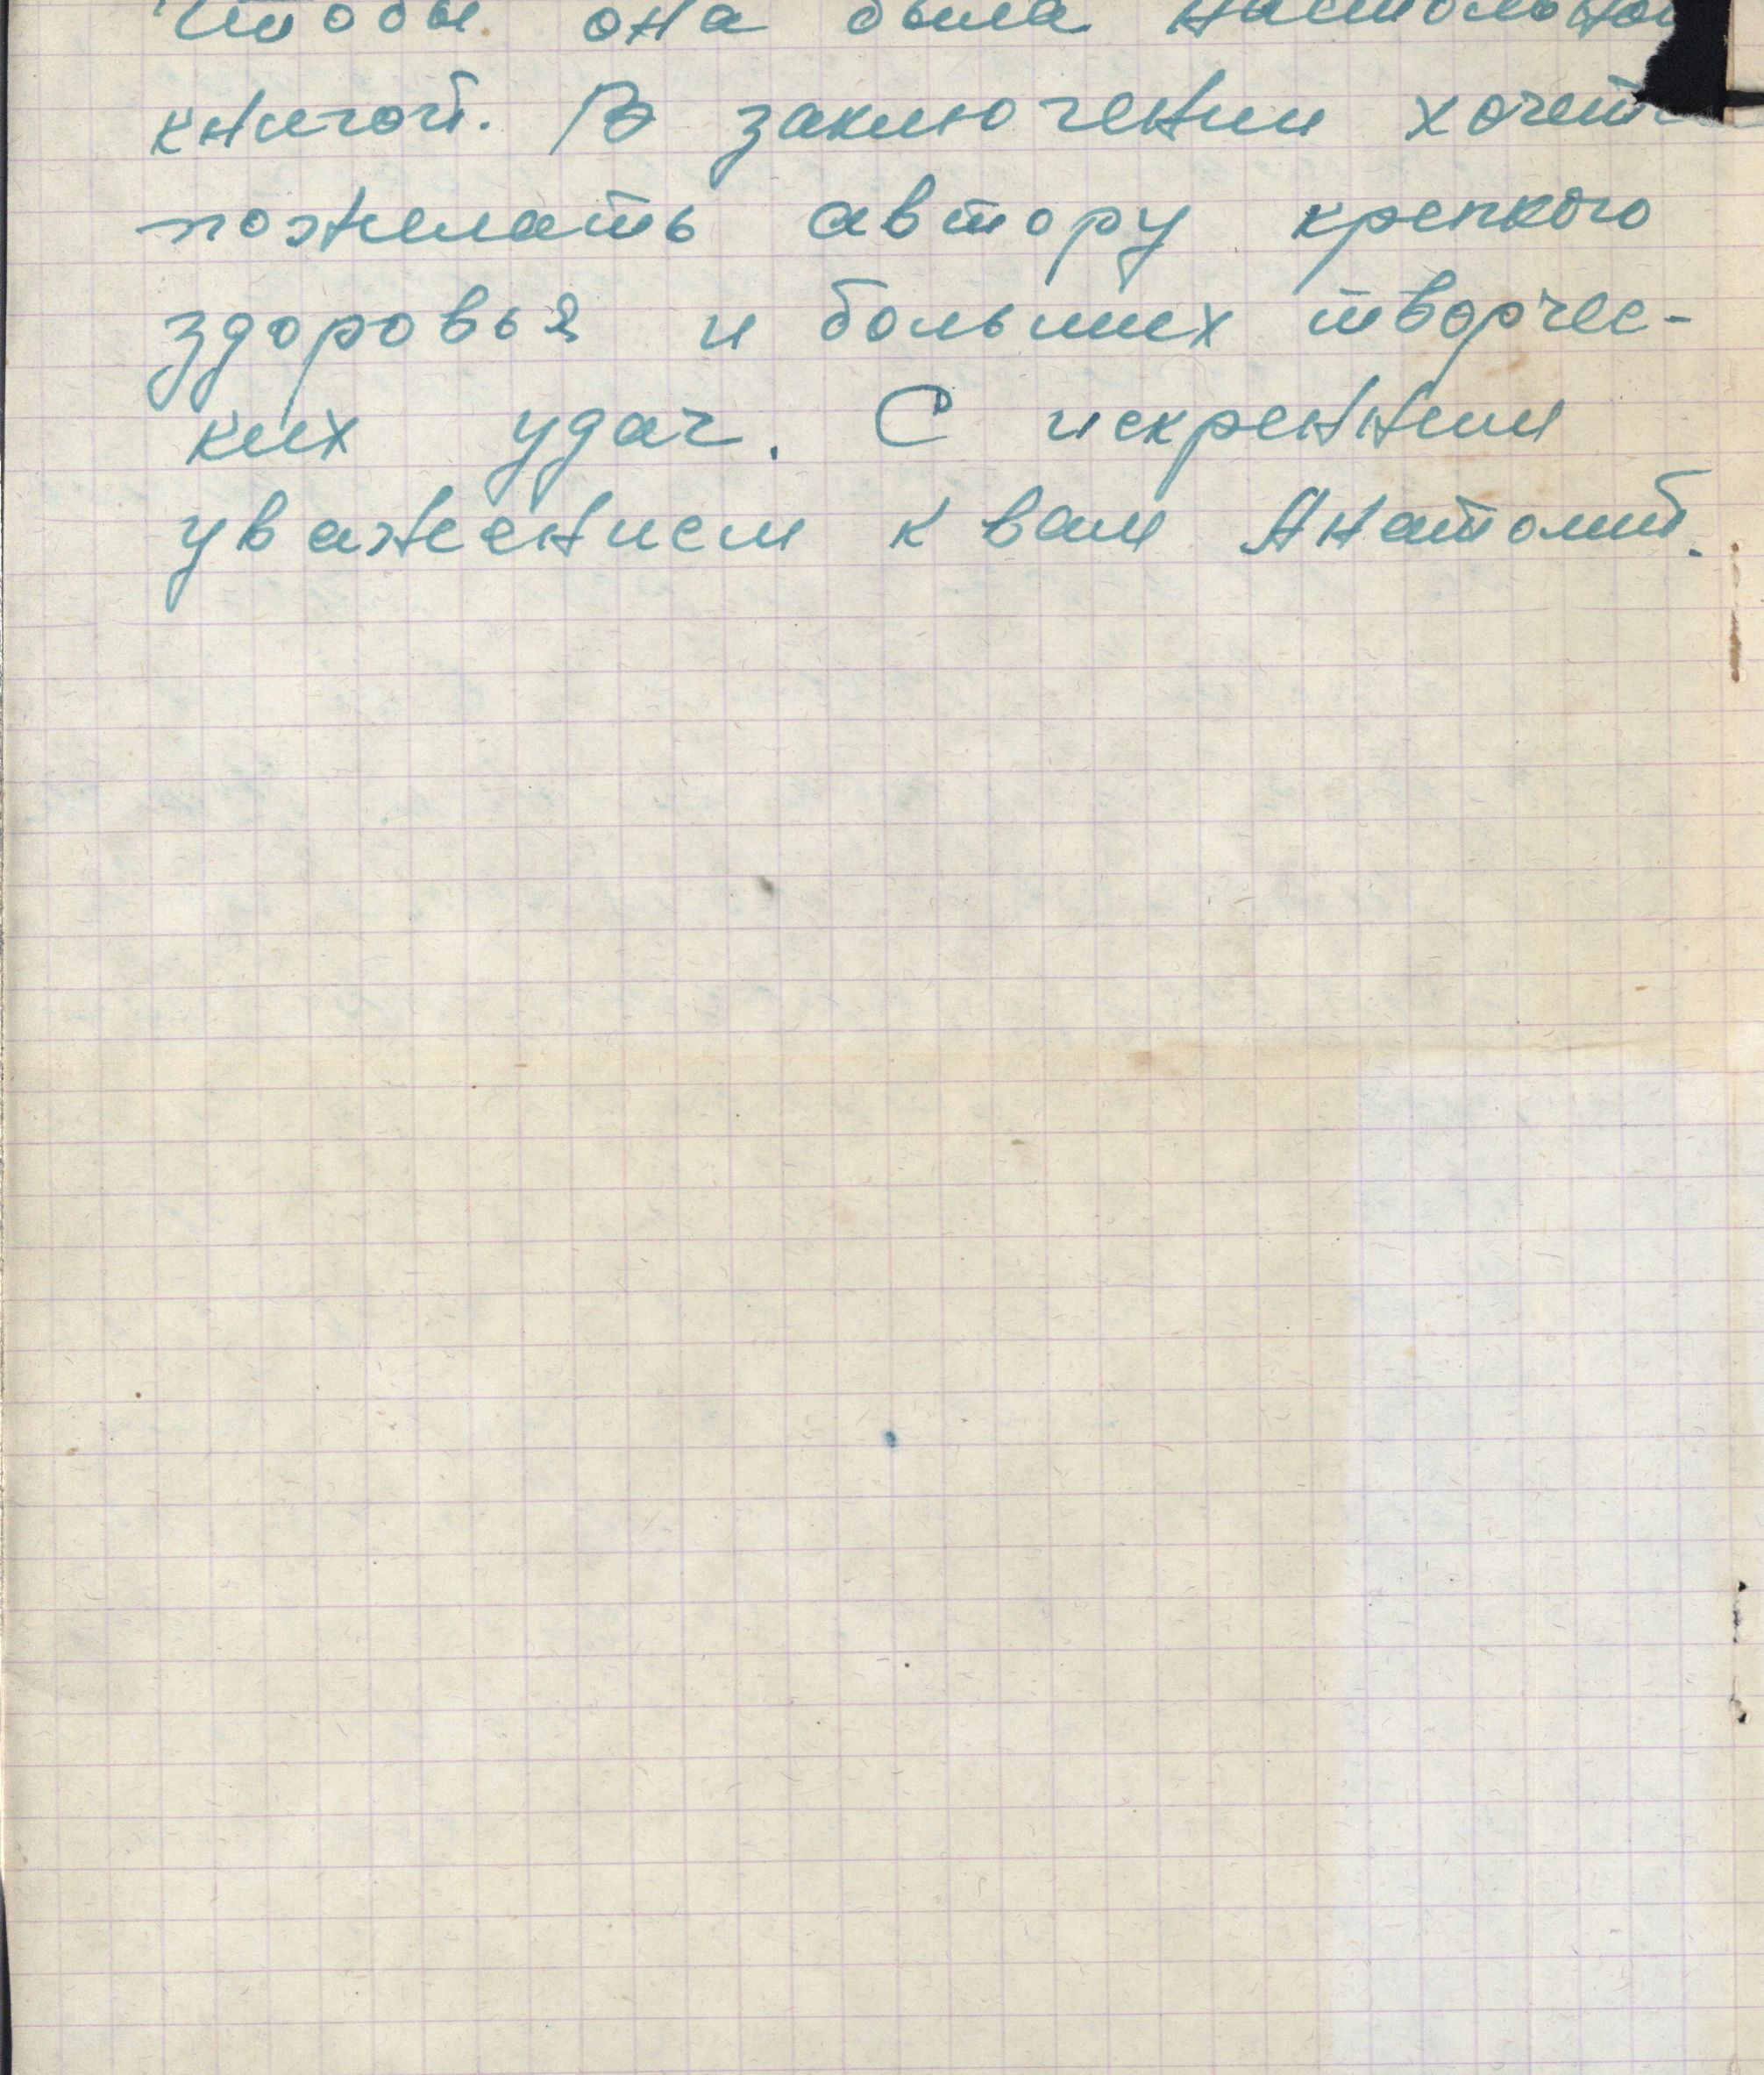 Чтобы она была настольной
книгой. В заключении хочется
пожелать автору крепкого
здоровья и больших творчес-
ких удач. С искренним
уважением к вам Анатолий.